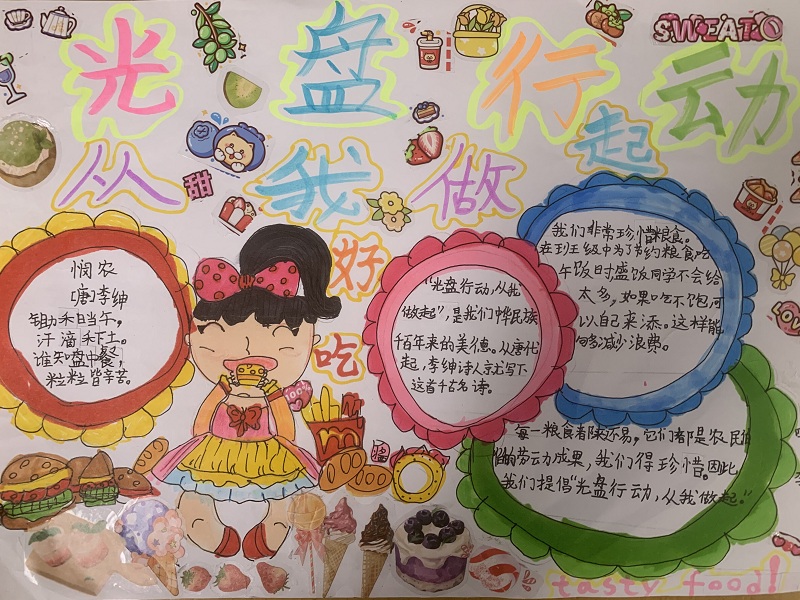 SWEATO
光盘行动
从我做起
甜
好
吃
悯农
[唐]李绅
锄禾日当午,
汗滴禾下土。
谁知盘中餐,
粒粒皆辛苦。
"光盘行动,从我
做起",是我们中华民族
千百年来的美德。从唐代
起,李绅诗人就写下
这首千古名诗。
我们非常珍惜粮食。
在班级中为了节约粮食吃
午饭时盛饭同学不会给
太多,如果吃不饱,可
以自己来添。这样能
够减少浪费。
每一粮食都来还易,它们都是农民伯
伯的劳动成果,我们得珍惜。因此,
我们提倡"光盘行动,从我做起。"
tasty food!